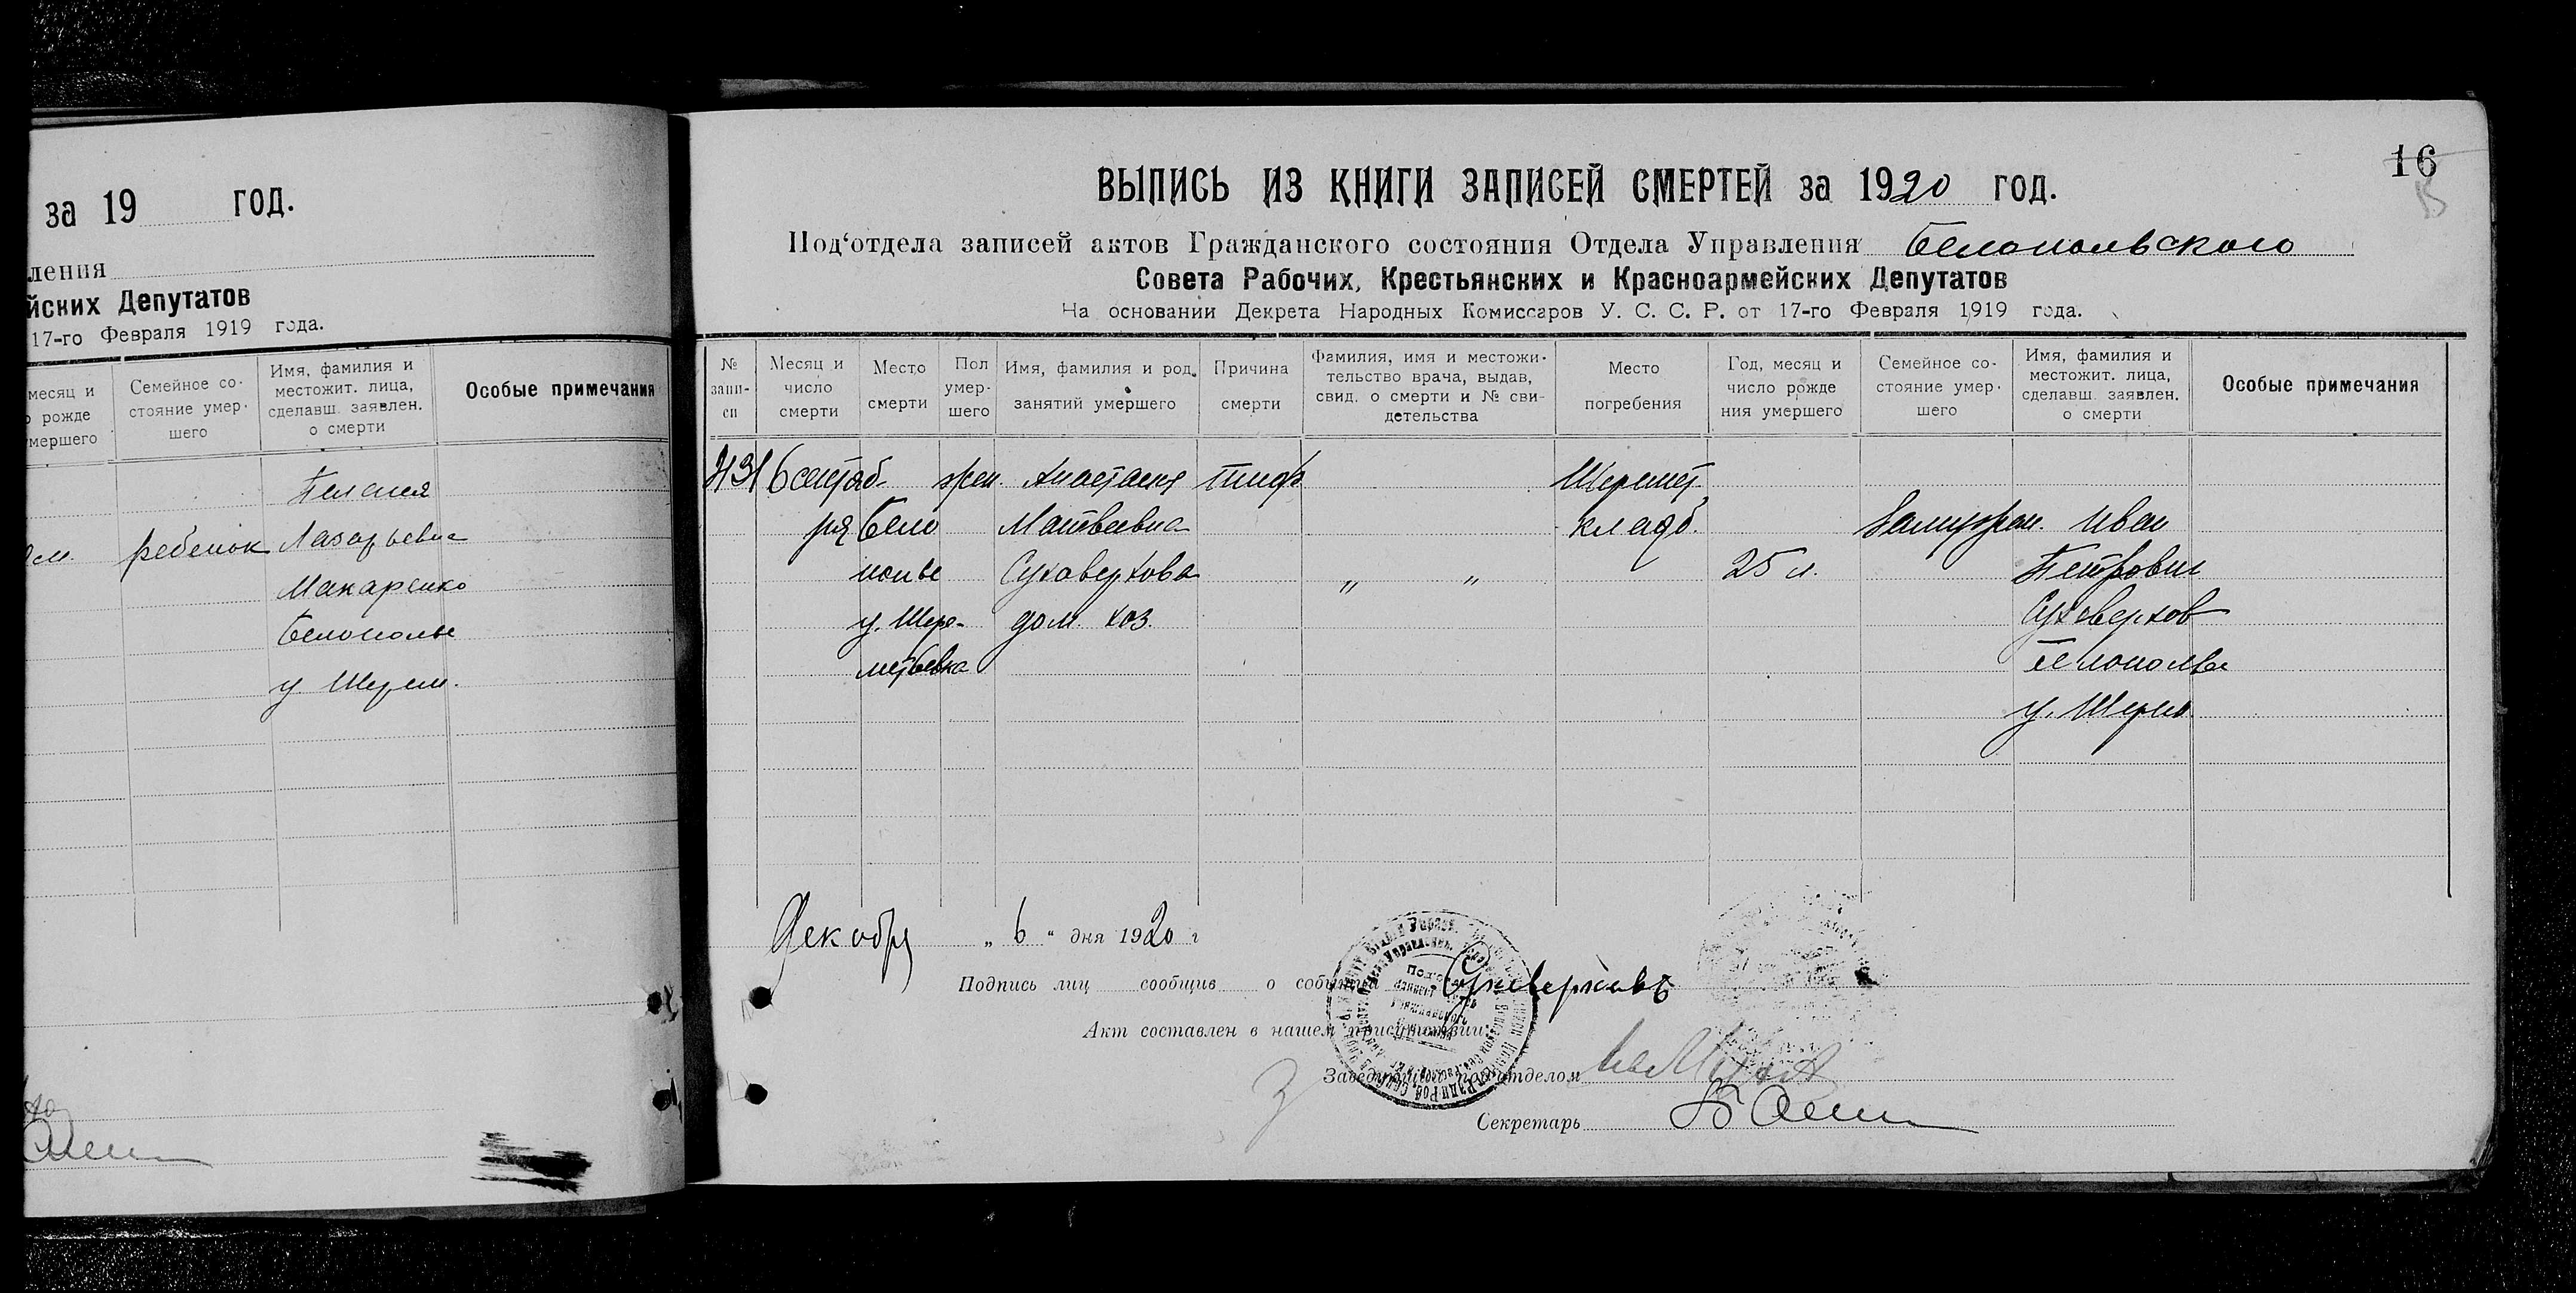 за 19 год.
ления
йских Депутатов
17-го Февраля 1919 года.
месяц и
о рожде
умершего
Семейное со-
стояние умер-
шего
Имя, фамилия и
местожит. лица,
сделавш. заявлен.
о смерти
Особые примечания
ребенок
Лазарьевна
Макаренко
Белополье
у Шерем.
16
ВЫПИСЬ ИЗ КНИГИ ЗАПИСЕЙ СМЕРТЕЙ за 1920 год.
Под‘отдела записей актов Гражданского состояния Отдела Управления Белопольского
Совета Рабочих, Крестьянских и Красноармейских Депутатов
На основании Декрета Народных Комиссаров У. С. С. Р. от 17-го Февраля 1919 года.
№
запи-
си
Месяц и
число
смерти
Место
смерти
Пол
умер-
шего
Имя, фамилия и род.
занятий умершего
Причина
смерти
Фамилия, имя и местожи-
тельство врача, выдав,
свид. о смерти и № сви-
детельства
Место
погребения
Год, месяц и
число рожде
ния умершего
Семейное со-
стояние умер-
шего
Имя, фамилия и
местожит. лица,
сделавш. заявлен.
о смерти
Особые примечания
431
6 сентяб-
ря
Бело
полье
у. Шере-
метьевка
жен.
Анастасия
Матвеевна
Суховерхова
дом. хоз.
тиф
„ „
Шеремет.
кладб.
25 л.
Замужем.
Иван
Петрович
Суховерхов
Белополье
у. Шерем.
Декабря „ 6 “ дня 1920 г
Подпись лиц сообщив о событии Суховерховъ
Акт составлен в нашем присутствии:
Заведующий под'отделом
Секретарь